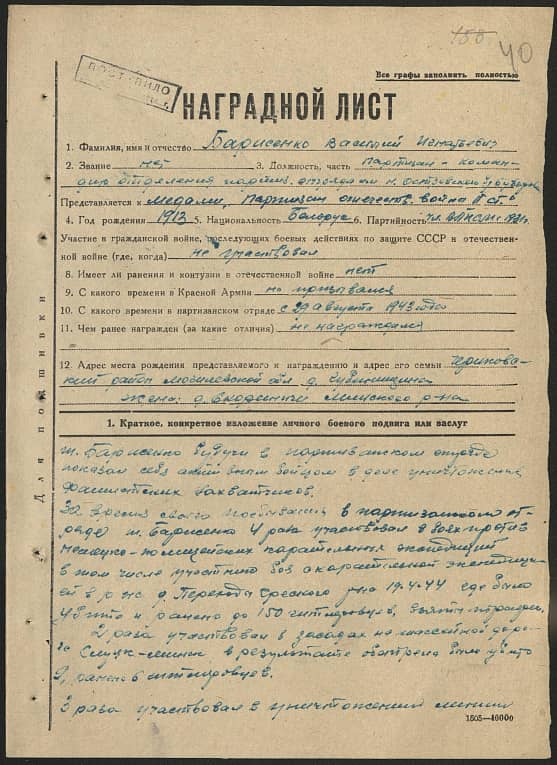 158
40
Все графы заполнить полностью
ПОСТУПИЛО
НАГРАДНОЙ ЛИСТ
1. Фамилия, имя и отчество Барисенко Василий Игнатьевич
2. Звание нет 3. Должность, часть партизан - коман-
дир отделения партиз. отряда им. Островского
Представляется к медали „Партизан отечеств. война II ст."
4. Год рождения 1913 5. Национальность Белорус 6. Партийность
Участие в гражданской войне, последующих боевых действиях по защите СССР и отечествен-
ной войне (где, когда) не участвовал
8. Имеет ли ранения и контузии в отечественной войне нет
9. С какого времени в Красной Армии не призывался
10. С какого времени в партизанском отряде с 29 августа 1943 года
11. Чем ранее награжден (за какие отличия) не награждался
12. Адрес места рождения представляемого к награждению и адрес его семьи Чериков-
ский район Могилевской обл д.
жена: д. Минского р-на
Для подшивки
1. Краткое, конкретное изложение личного боевого подвига или заслуг
т. Барисенко будучи в партизанском отряде
показал себя активным бойцом в деле уничтожения
фашистских захватчиков.
За время своего пребывания в партизанском от-
ряде т. Барисенко 4 раза участвовал в боях против
немецко-полицейских карательных экспедиций
в том числе участник боя с карательной экспедици-
ей в р-не д. Переходы ского р-на 19.4.44 где было
убито и ранено до 150 гитлеровцев, взяты трофеи.
2 раза участвовал в засадах на шоссейной доро-
ге Слуцк-Минск в результате обстрела было убито
9, ранено 6 гитлеровцев.
3 раза участвовал в уничтожении линии
1505—10000